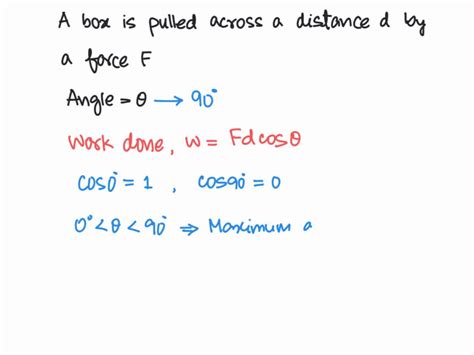 A box is pulled across a distance d by
a force F
Angle = θ → 90°
Work done, W = Fd cosθ
cos0° = 1 , cos90° = 0
0° < θ < 90° ⇒ Maximum a